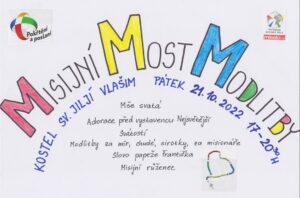 Pokřtění
a poslaní
MISIJNÍ MOST MODLITBY
KOSTEL SV. JILJÍ VLAŠIM PÁTEK 21.10.2022 17-20
Mše svatá
Adorace před vystavenou Nejsvětější
Svátostí
Modlitby za mír, chudé, sirotky, za misionáře
Slovo papeže Františka
Misijní růženec